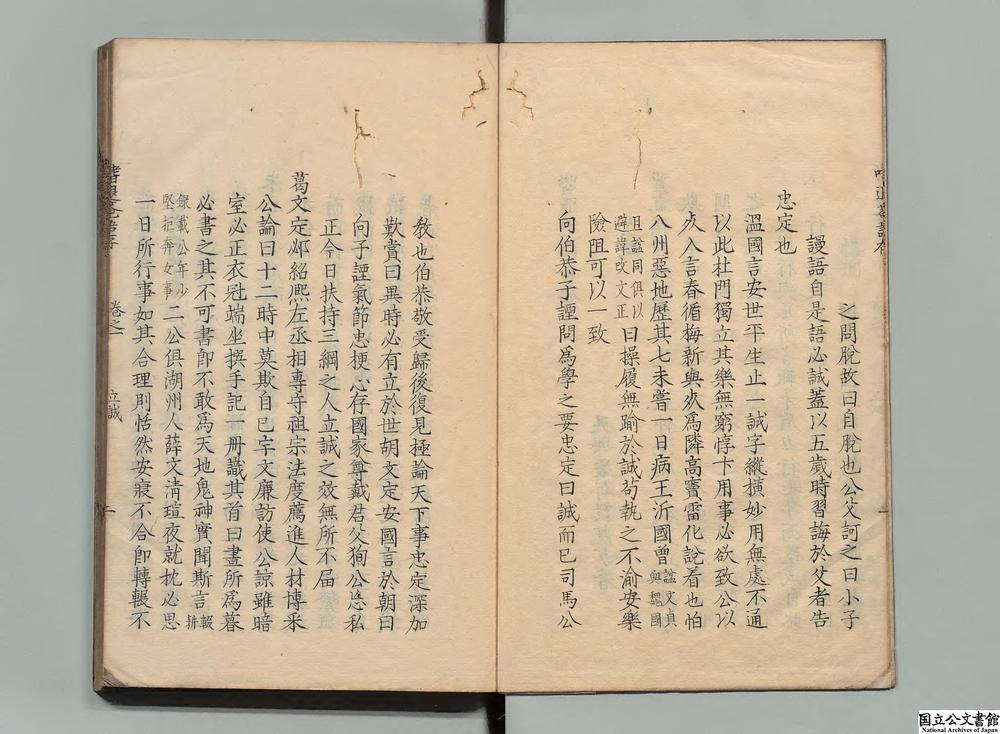 之問脫故曰自脫也公父訶之曰小子
謾語自是語必誠蓋以五歲時習誨於父者告
忠定也
溫國言安世平生止一誠字縱橫妙用無處不通
以此杜門獨立其樂無窮惇卞用事必欲致公以
入言春循梅新與為隣高竇雷化說着也怕
八州惡地歷其七未嘗一日病王沂國曾謚文貞與魏國
且謚同俱以避諱改文正曰操履無踰於誠苟執之不渝安樂
險阻可以一致
向伯恭子諲問為學之要忠定曰誠而已司馬公
教也伯恭敬受歸後復見極論天下事忠定深加
歎賞曰異時必有立於世胡文定安國言於朝曰
向子諲氣節忠梗心存國家尊戴君父狥公忘私
正今日扶持三綱之人立誠之效無所不屆
葛文定邲紹熙左丞相專守祖宗法度薦進人材博采
公論曰十二時中莫欺自己宇文廉訪使公諒雖暗
室必正衣冠端坐撰手記一冊識其首曰晝所為暮
必書之其不可書即不敢為天地鬼神實聞斯言輟耕
錄載公年少堅拒奔女事二公俱湖州人薛文清瑄夜就枕必思
一日所行事如其合理則恬然安寢不合即轉輾不
卷之一
立誠
一
国立公文書館
National Archives of Japan